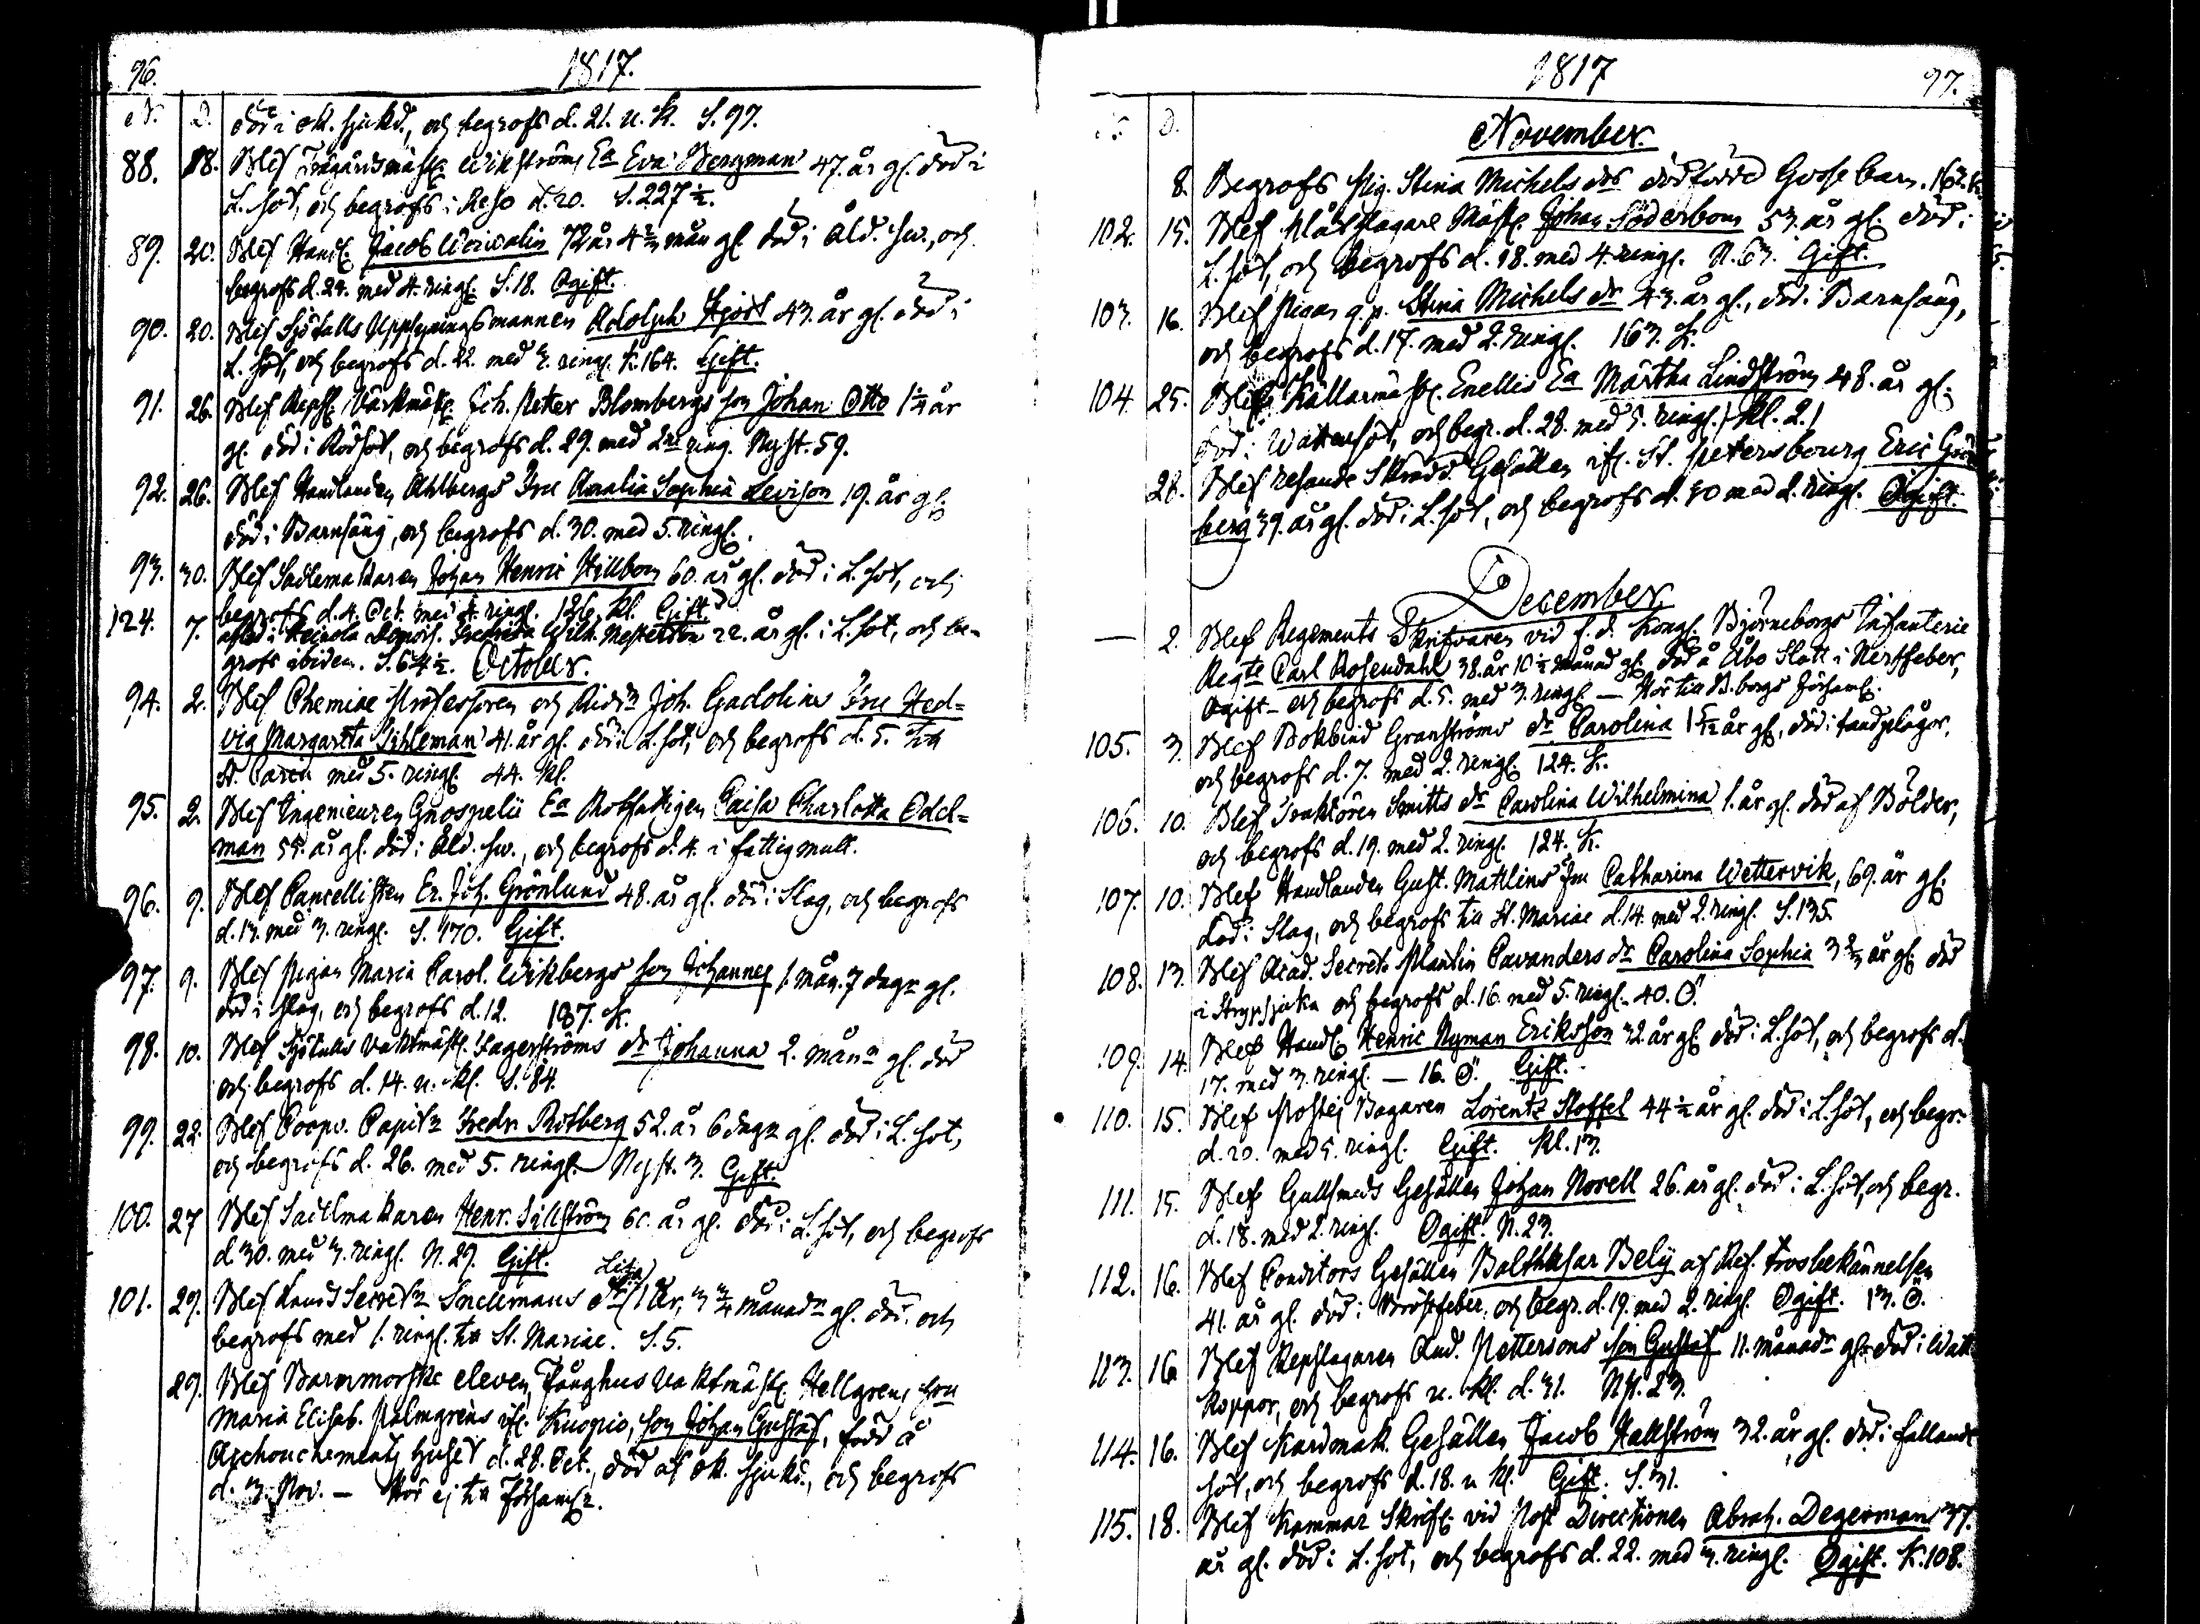 96. 1817.
N. D. död i ok. sjukd., och begrofs d. 21. u. k. S. 97.
88. 18. Blef Trägårdsmäst. Wikströms Ea Eva Bergman 47. år gl. död i
L. sot, och begrofs i Reso d. 20. S. 227 ½.
89. 20. Blef Handl. Jacob Werwalin 72 år 4 ⅔ mån gl. död i Åld. sw., och
begrofs d. 24. med 4. ringl. S. 18. Ogift.
90. 20. Blef Sjötulls Upsyningsmannen Adolph Hjort 43. år gl. död i
L. sot, och begrofs d. 22. med 3. ringl. K. 164. Gift.
91. 26. Blef Repsl. Värkmäst. Joh. Peter Blombergs son Johan Otto 1 ¼ år
gl. död i Rödsot, och begrofs d. 29. med 2ne ring. Nyst. 59.
92. 26. Blef Handlanden Ahlbergs Fru Amalia Sophia Levison 19. år gl.
död i Barnsäng, och begrofs d. 30. med 5. ringl.
93. 30. Blef Sadlemakaren Johan Henric Hillbom 60. år gl. död i L. sot, och
begrofs d. 4. Oct. med 4. ringl. 126. kl. Gift.
124. 7. afled i Heinola Demois. Fredrika Wilh. 22. år gl. i L. sot, och be-
grofs ibidem. S. 64 ½. October.
94. 2. Blef Chemiae Professoren och Ridr Joh. Gadolins Fru Hed-
vig Margareta Tihleman 41. år gl. död i L. sot, och begrofs d. 5. till
St. Carin med 5. ringl. 44. kl.
95. 2. Blef Ingenieuren Gnospelii Ea Rotfattigen Caisa Charlotta Odel-
man 55. år gl. död i Åld. sw., och begrofs d. 4. i fattigmult.
96. 9. Blef Cancellisten Er. Joh. Grönlund 48. år gl. död i Slag, och begrofs
d. 13. med 3. ringl. S. 170. Gift.
97. 9. Blef Pigan Maria Carol. Wikbergs son Johannes 1. mån. 7 dagr gl.
död i slag, och begrofs d. 12. 187. K.
98. 10. Blef Sjötulls Vaktmäst. Fagerströms dr Johanna 2. månr gl. död
och begrofs d. 14. u. kl. S. 84.
99. 22. Blef Coopv. Capitn Fredr Rotberg 52. år 6 dagr gl. död i L. sot,
och begrofs d. 26. med 5. ringl. Nyst. 3. Gift.
100. 27 Blef Sadlmakaren Henr. Sillström 60. år gl. död i L. sot, och begrofs
d. 30. med 3. ringl. N. 29. Gift.
101. 29. Blef Lands Secretn Snellmans dr Lisa 1 år, 3 ¾ månadr gl. död och
begrofs med 1. ringl. till St. Mariae. S. 5.
29. Blef Barnmorske eleven Tånghus Vaktmäst. Hellgrens hu
Maria Elisab. Palmgrens ifr. Kuopio, son Johan Gustaf, född å
Acchouchements huset d. 28. Oct., död af ok. sjukd., och begrofs
d. 3. Nov. — Hör ej till Församl.
1817 97.
N. D. November.
8. Begrofs Pig. Stina Michels drs dödfödde Gosse barn. 163. K.
102. 15. Blef Plåtslagare Mäst. Johan Söderbom 53. år gl. död i
L. sot, och begrofs d. 18. med 4. ringl. N. 63. Gift.
103. 16. Blef Pigan q. p. Stina Michels dr 43. år gl., död i Barnsäng,
och begrofs d. 17. med 2. ringl. 163. K.
104. 25. Blef Källarmäst. Enellis Ea Märtha Lindström 48. år gl.
död i Wattusot, och begr. d. 28. med 5. ringl. Kl. 2.
28. Blef resande Skrädd. Gesällen ifr. St. Petersbourg Eric
berg 39. år gl. död i L. sot, och begrofs d. 30 med 2. ringl. Ogift.
December
— 2. Blef Regements Skrifvaren vid f. d. Kongl. Björneborgs Infanterie
Regte Carl Rosendahl 38. år 10 ½ månad gl. död å Åbo Slott i Nerffeber,
Ogift — och begrofs d. 5. med 3. ringl. — Hör till B. borgs Församl.
105. 3. Blef Bokbind Granströms dr Carolina 1 5/12 år gl., död i tandplågor,
och begrofs d. 7. med 2. ringl. 124. K.
106. 10. Blef Traktören Smitts dr Carolina Wilhelmina 1. år gl. död af Bölder,
och begrofs d. 19. med 2. ringl. 124. K.
107. 10. Blef Handlanden Gust. Mattlins Fru Catharina Wettervik, 69. år gl.
död i Slag, och begrofs till St. Mariae d. 14. med 2. ringl. S. 135.
108. 13. Blef Acad. Secret. Martin Cavanders dr Carolina Sophia 3 ⅔ år gl. död
i Strypsjuka och begrofs d. 16. med 5. ringl. 40. Ö.
109. 14. Blef Handl. Henric Nyman Eriksson 32. år gl. död i L. sot, och begrofs d.
17. med 3. ringl. — 16. Ö. Gift.
110. 15. Blef Bagaren Lorentz Stoffel 44 ½ år gl. död i L. sot, och begr.
d. 20. med 5. ringl. Gift. Kl. 13.
111. 15. Blef Gullsmeds Gesällen Johan Norell 26. år gl. död i L. sot, och begr.
d. 18. med 2. ringl. Ogift. N. 23.
112. 16. Blef Conditors Gesällen Balthasar Bely af Ref. trosbekännelsen
41. år gl. död i Bröstfeber, och begr. d. 19. med 2. ringl. Ogift. 13. Ö.
113. 16 Blef Repslagaren And. Pettersons son Gustaf 11. månadr gl. död i Watt
Koppor, och begrofs u. kl. d. 31. Nst. 23.
114. 16. Blef Kardmak. Gesällen Jacob Hallström 32. år gl. död i fallande
sot, och begrofs d. 18. u kl. Gift. S. 31.
115. 18. Blef Kammar Skrifv. vid Post Directionen Abrah. Degerman 37.
år gl. död i L. sot, och begrofs d. 22. med 3. ringl. Ogift. K. 108.